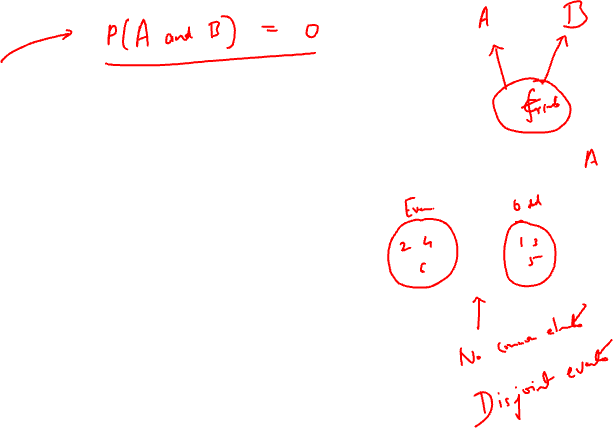 P(A and B) = 0
A B
A
Even Odd
2 4 1 3
6 5
No common elements
Disjoint events